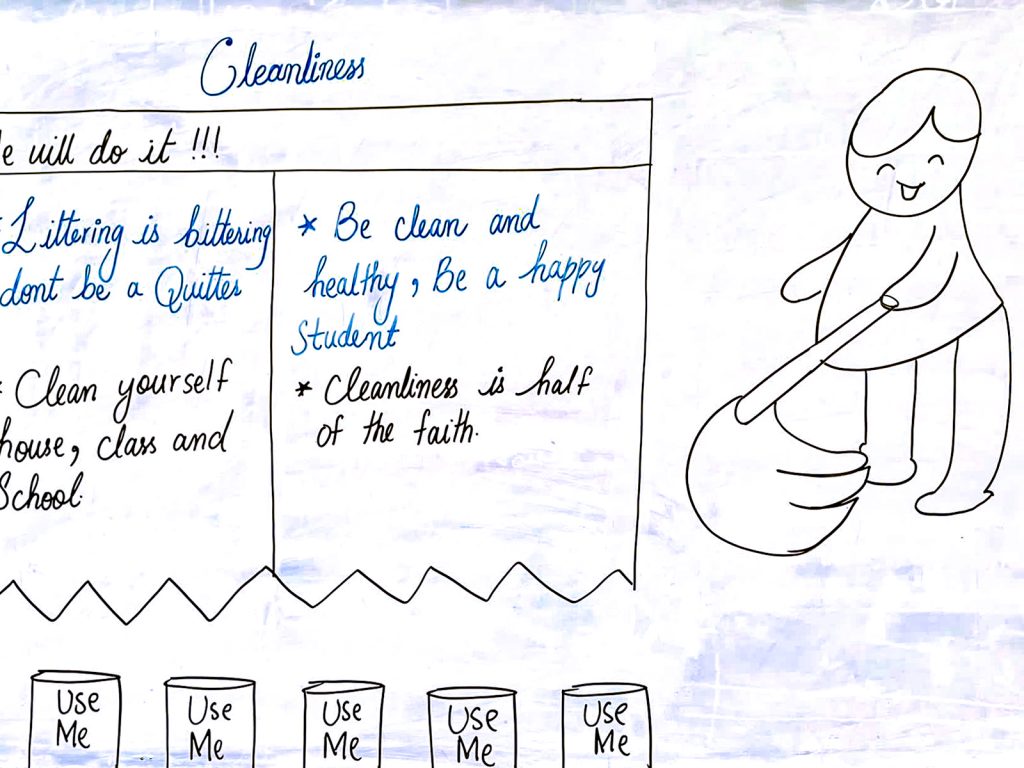 Cleanliness
e will do it !!!
* Littering is bittering
dont be a Quitter
* Clean yourself
house, class and
School.
* Be clean and
healthy, Be a happy
Student
* Cleanliness is half
of the faith.
Use
Me
Use
Me
Use
Me
Use
Me
Use
Me